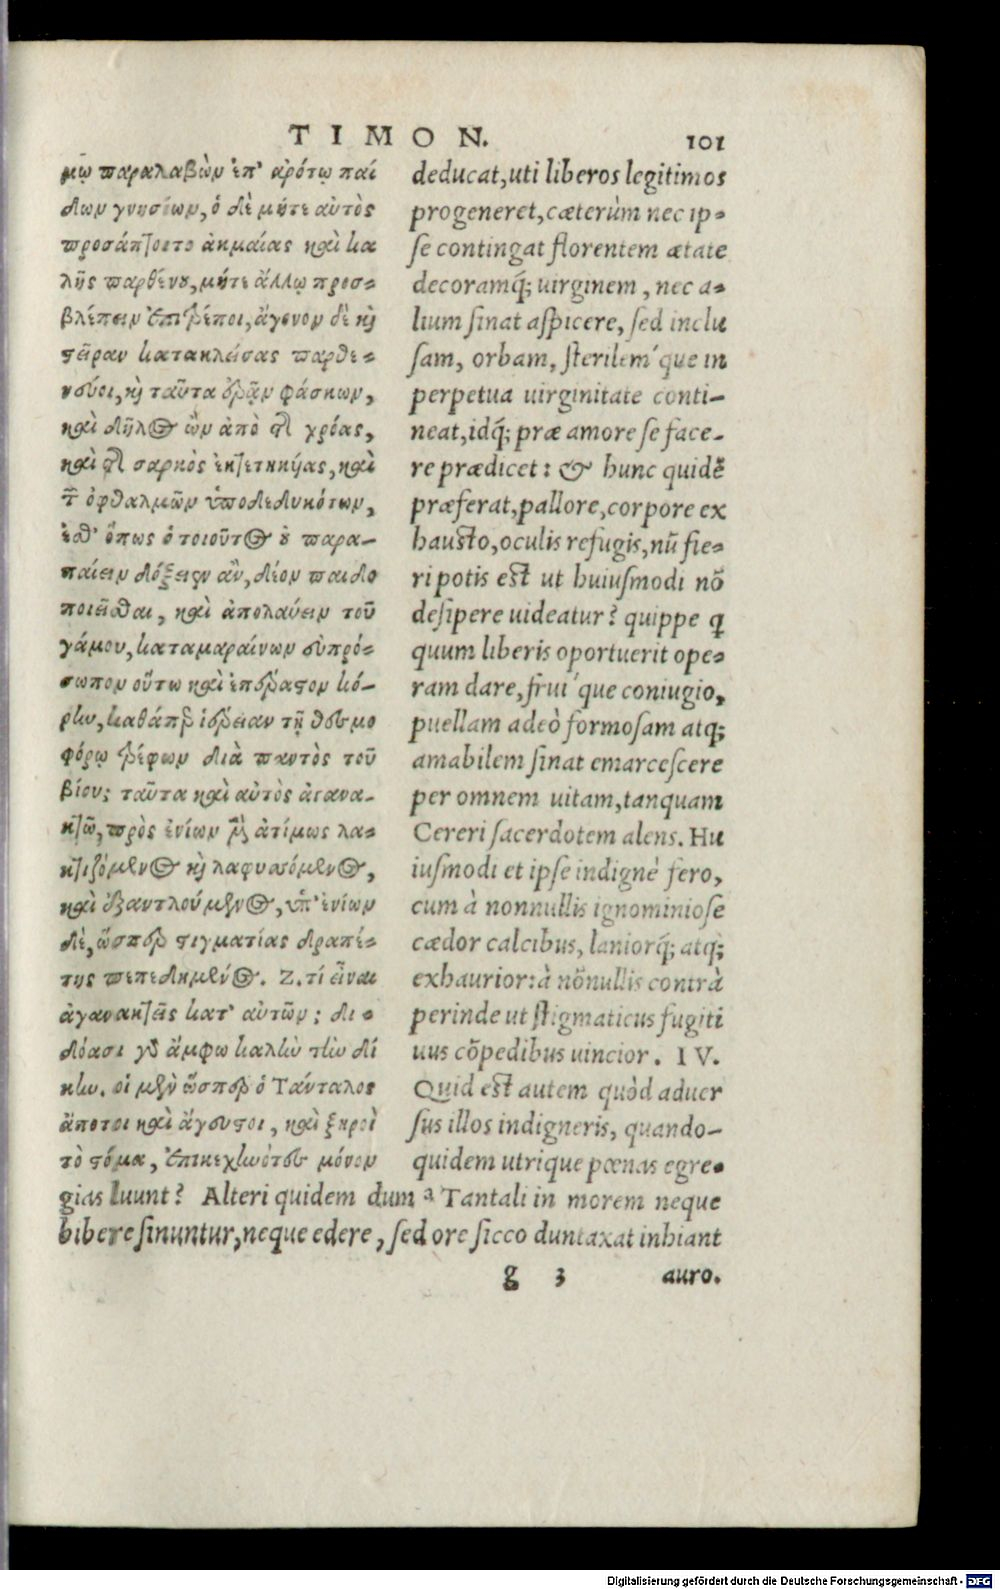 TIMON. 101
μῳ παραλαβὼν ἐπ' ἀρότῳ παί
δων γνησίων, ὁ δὲ μήτε αὐτὸς
προσάπτοιτο ἀκμαίας καὶ κα
λῆς παρθένου, μήτε ἄλλῳ προσ-
βλέπειν ἐπιτρέποι, ἄγονον δὲ καὶ
στεῖραν κατακλείσας παρθε-
νεύοι, καὶ ταῦτα ἐρᾷν φάσκων,
καὶ δῆλος ὢν ἀπὸ τῆς χρόας,
καὶ τῆς σαρκὸς ἐκτετηκυίας, καὶ
τῶν ὀφθαλμῶν ὑποδεδυκότων,
ἐσθ' ὅπως ὁ τοιοῦτος οὐ παρα-
παίειν δόξειεν ἂν, δέον παιδο
ποιεῖσθαι, καὶ ἀπολαύειν τοῦ
γάμου, καταμαραίνων εὐπρό-
σωπον οὕτω καὶ ἐπέραστον κό-
ρην, καθάπερ ἱέρειαν τῇ θεσμο
φόρῳ τρέφων διὰ παντὸς τοῦ
βίου; ταῦτα καὶ αὐτὸς ἀγανα-
κτῶ, πρὸς ἐνίων μὲν ἀτίμως λα-
κτιζόμενος καὶ λαφυσσόμενος,
καὶ ἐξαντλούμενος, ὑπ' ἐνίων
δὲ, ὥσπερ στιγματίας δραπέ-
της πεπεδημένος. Ζ. τί εἶναι
ἀγανακτεῖς κατ' αὐτῶν; δι-
δόασι γὰρ ἄμφω καλὴν τὴν δί
κην. οἱ μὲν ὥσπερ ὁ Τάνταλος
ἄποτοι καὶ ἄγευστοι, καὶ ξηροὶ
τὸ στόμα, ἐπικεχηνότες μόνον
deducat, uti liberos legitimos
progeneret, cæterùm nec ip-
se contingat florentem ætate
decoramq́; uirginem, nec a-
lium sinat aspicere, sed inclu
sam, orbam, sterilem´que in
perpetua uirginitate conti-
neat, idq́; præ amore se face-
re prædicet: & hunc quidē
præferat, pallore, corpore ex
hausto, oculis refugis, nū fie-
ri potis est ut huiusmodi nō
desipere uideatur? quippe ꝗ
quum liberis oportuerit ope-
ram dare, frui´que coniugio,
puellam adeò formosam atq;
amabilem sinat emarcescere
per omnem uitam, tanquam
Cereri sacerdotem alens. Hu
iusmodi et ipse indignè fero,
cum à nonnullis ignominiose
cædor calcibus, laniorq́; atq́;
exhaurior: à nōnullis contrà
perinde ut stigmaticus fugiti
uus cōpedibus uincior. IV.
Quid est autem quòd aduer
sus illos indigneris, quando-
quidem utrique pœnas egre-
gias luunt? Alteri quidem dum a Tantali in morem neque
bibere sinuntur, neque edere, sed ore sicco duntaxat inhiant
g 3 auro.
Digitalisierung gefördert durch die Deutsche Forschungsgemeinschaft - DFG